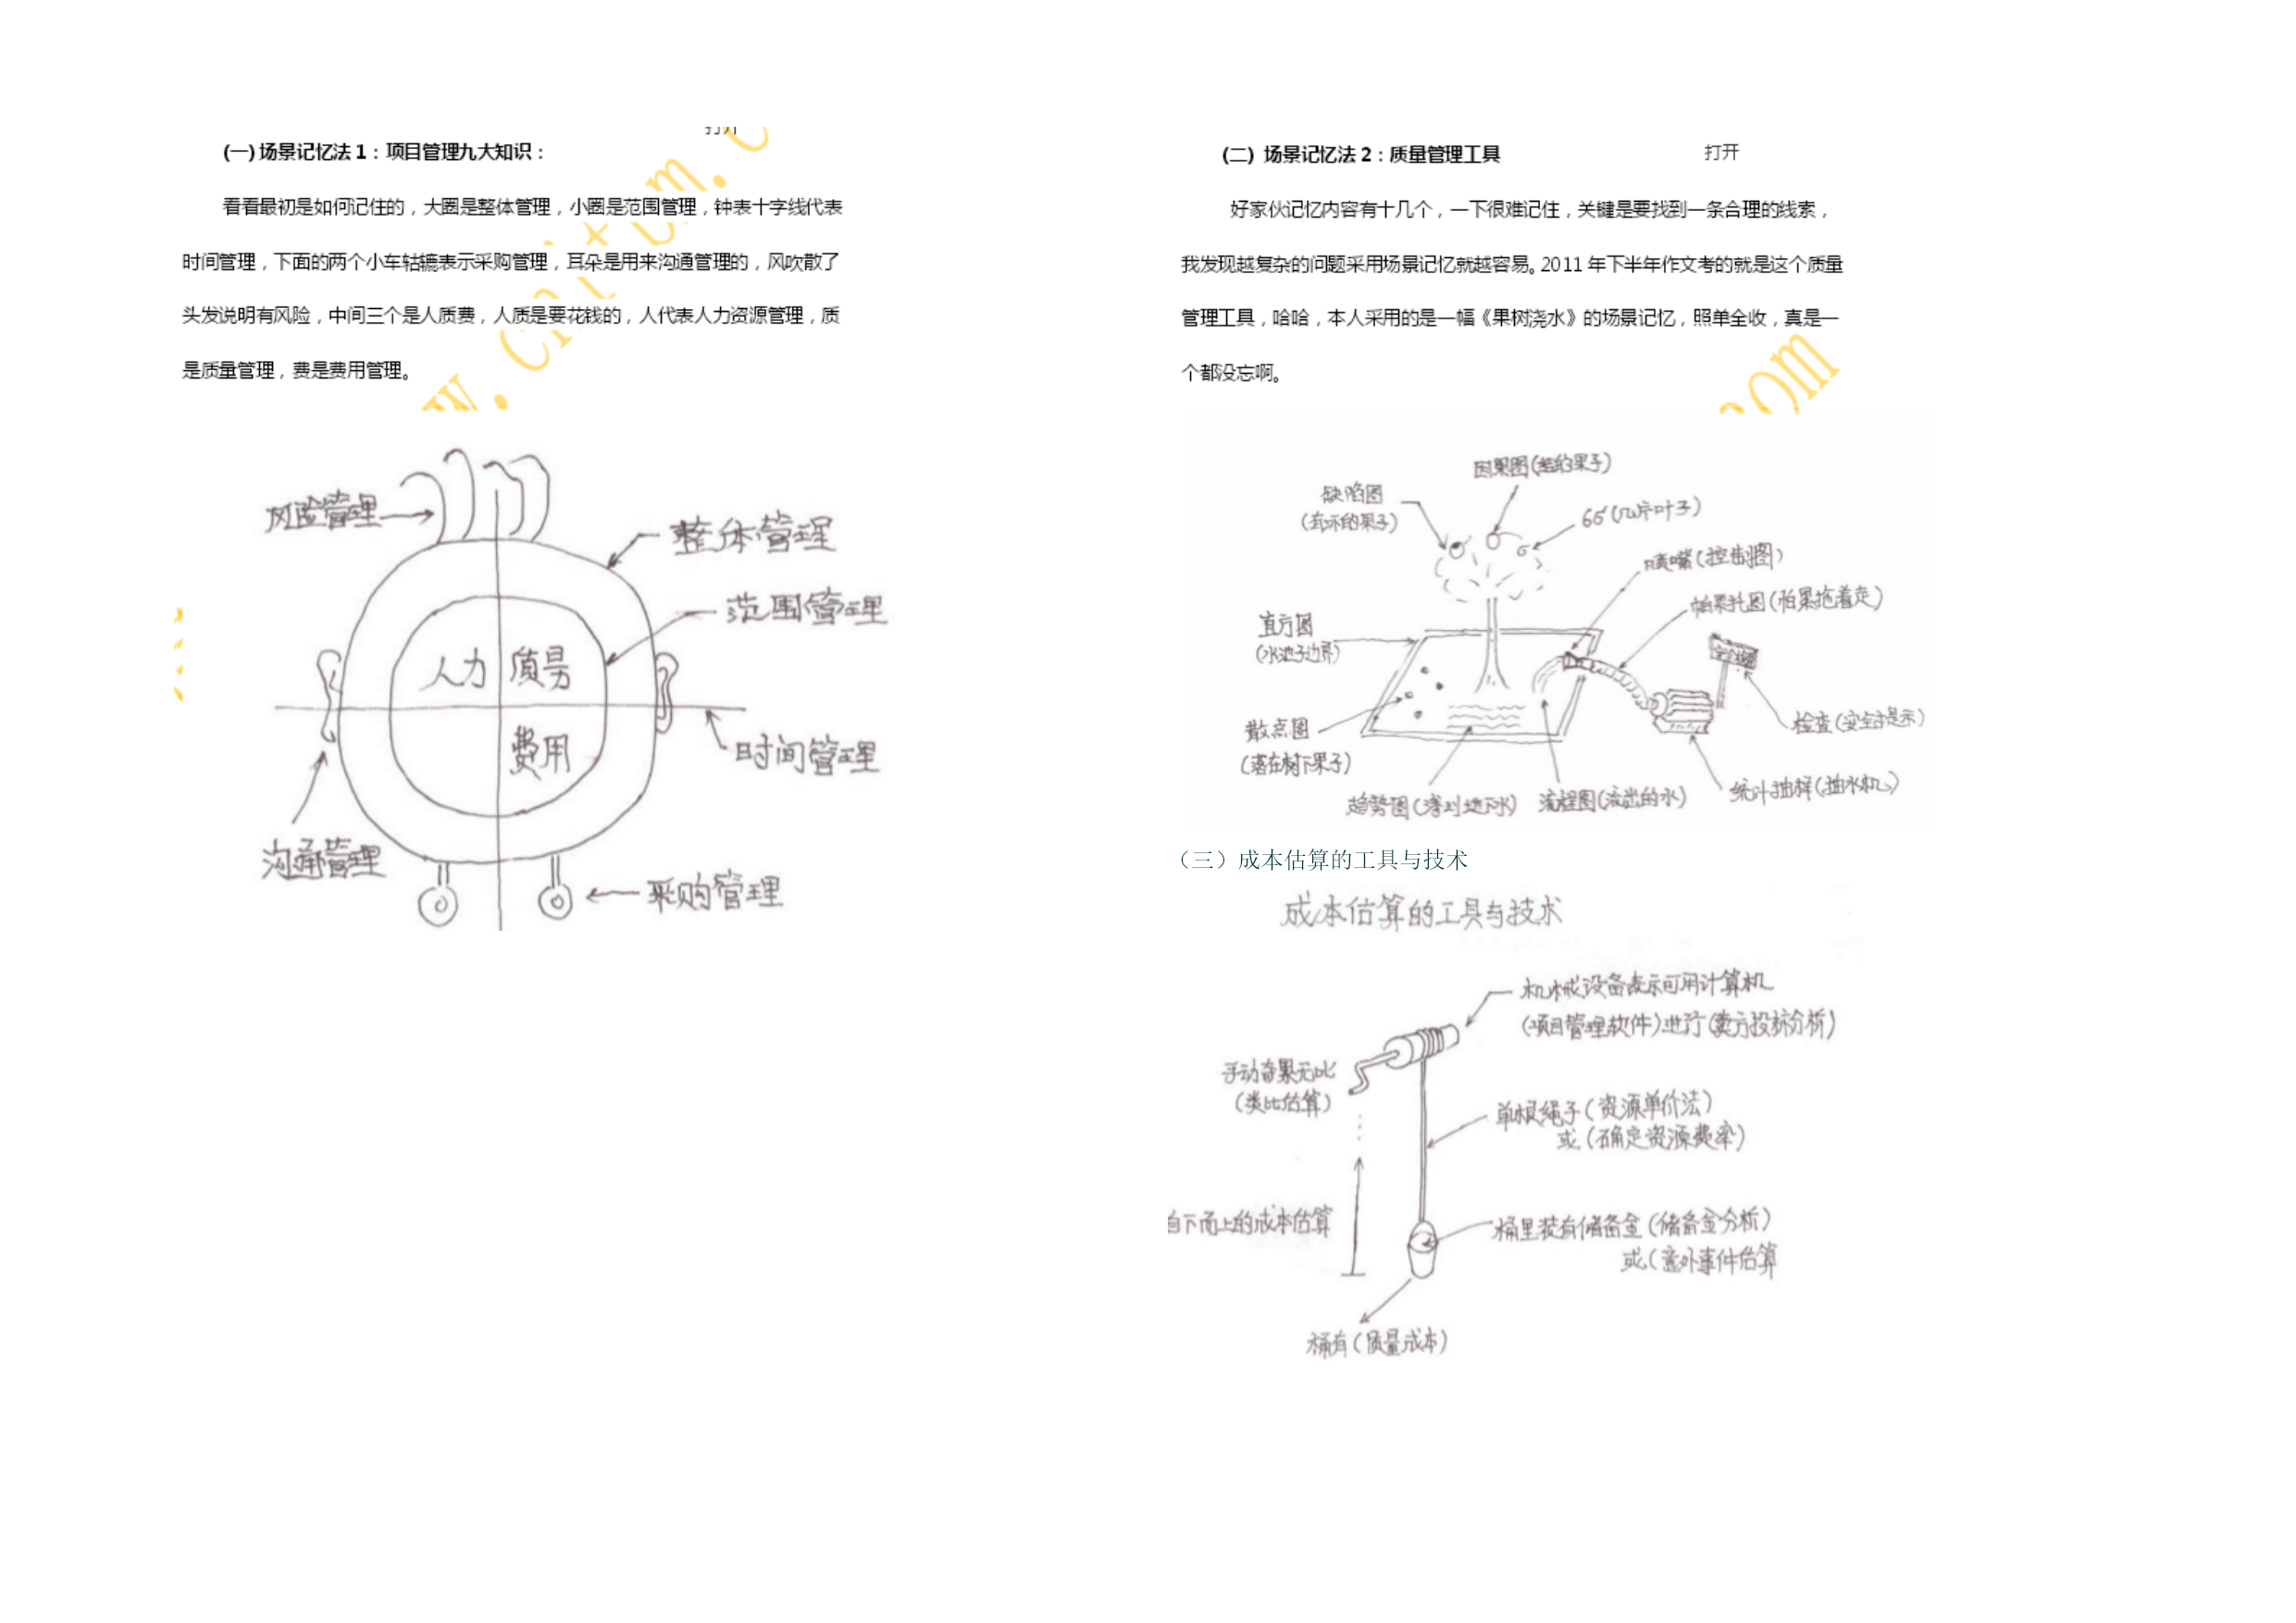 打开
(一) 场景记忆法 1：项目管理九大知识：
看看最初是如何记住的，大圈是整体管理，小圈是范围管理，钟表十字线代表
时间管理，下面的两个小车轱辘表示采购管理，耳朵是用来沟通管理的，风吹散了
头发说明有风险，中间三个是人质费，人质是要花钱的，人代表人力资源管理，质
是质量管理，费是费用管理。
风险管理
整体管理
范围管理
人力 质量
费用
时间管理
沟通管理
采购管理
(二) 场景记忆法 2：质量管理工具
打开
好家伙记忆内容有十几个，一下很难记住，关键是要找到一条合理的线索，
我发现越复杂的问题采用场景记忆就越容易。2011 年下半年作文考的就是这个质量
管理工具，哈哈，本人采用的是一幅《果树浇水》的场景记忆，照单全收，真是一
个都没忘啊。
com
因果图(结的果子)
缺陷图
(有坏的果子)
66(几片叶子)
喷嘴(控制图)
帕累托图(怕累拖着走)
直方图
(水池子边界)
检查(安全提示)
散点图
(落在树下果子)
趋势图(渗到地下水)
流程图(流出的水)
统计抽样(抽水机)
（三）成本估算的工具与技术
成本估算的工具与技术
机械设备表示可用计算机
(项目管理软件)进行(卖方投标分析)
手动奇累无比
(类比估算)
单根绳子(资源单价法)
或(确定资源费率)
自下而上的成本估算
桶里装有储备金(储备金分析)
或(意外事件估算
桶有(质量成本)